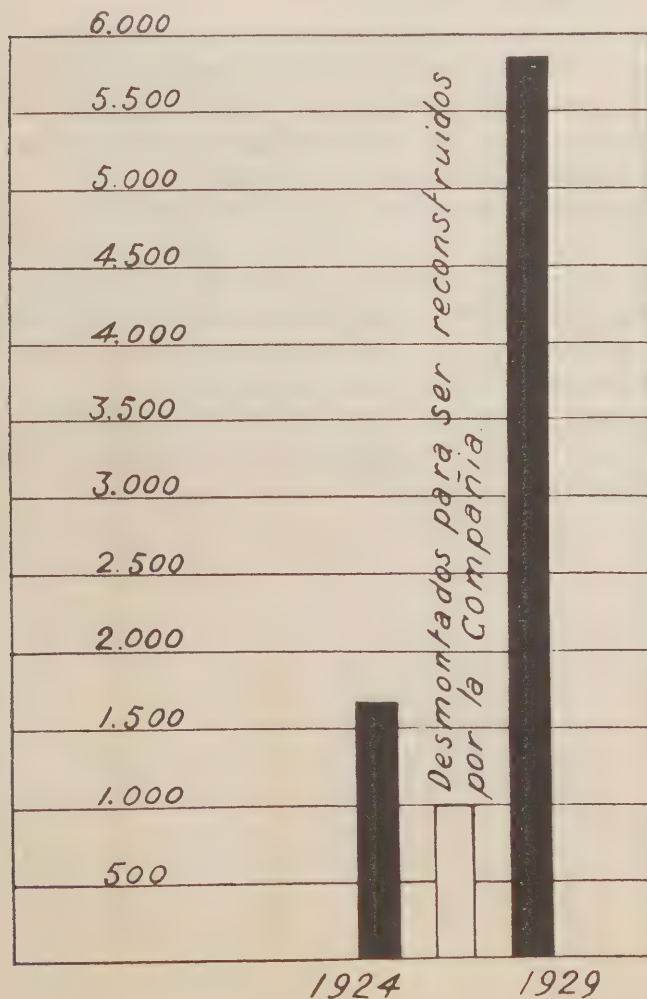 6.000
5.500
5.000
4.500
4.000
3.500
3.000
2.500
2.000
1.500
1.000
500
Desmontados para ser reconstruidos
por la Compañia.
1924 1929